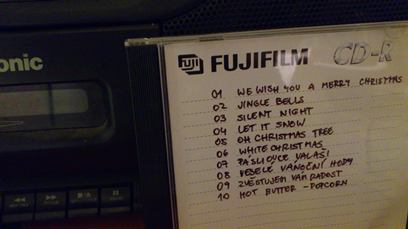 onic
FUJI FUJIFILM CD-R
01 WE WISH YOU A MERRY CHRISTMAS
02 JINGLE BELLS
03 SILENT NIGHT
04 LET IT SNOW
05 OH CHRISTMAS TREE
06 WHITE CHRISTMAS
07 PÁSLI OVCE VALAŠI
08 VESELÉ VÁNOČNÍ HODY
09 ZVĚSTUJEM VÁM RADOST
10 HOT BUTTER - POPCORN